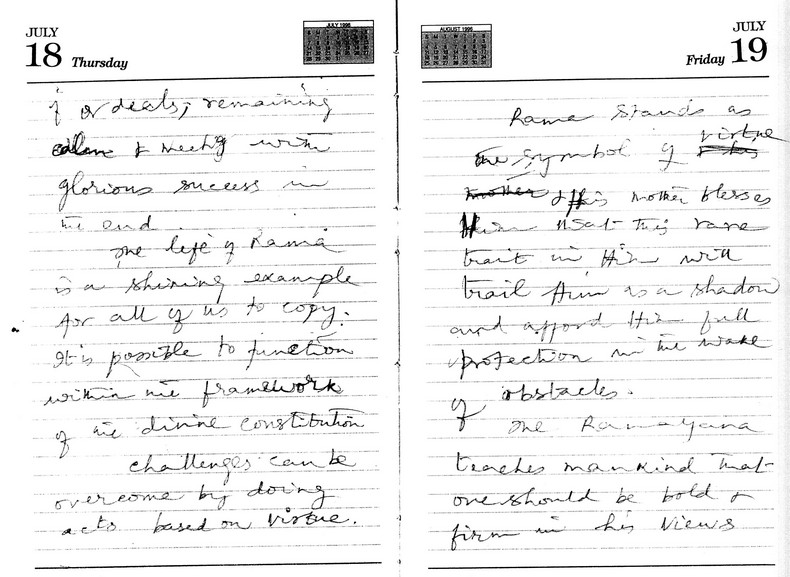 JULY
18 Thursday
JULY 1996
of ordeals, remaining
calm & meeting with
glorious success in
the end.
The life of Rama
is a shining example
for all of us to copy.
It is possible to function
within the framework
of the divine constitution
Challenges can be
overcome by doing
acts based on virtue.
AUGUST 1996
JULY
Friday 19
Rama stands as
the symbol of virtue
& His mother blesses
Him that this rare
trait in Him will
trail Him as a shadow
and afford Him full
protection in the wake
of obstacles.
The Ramayana
teaches mankind that
one should be bold &
firm in his views